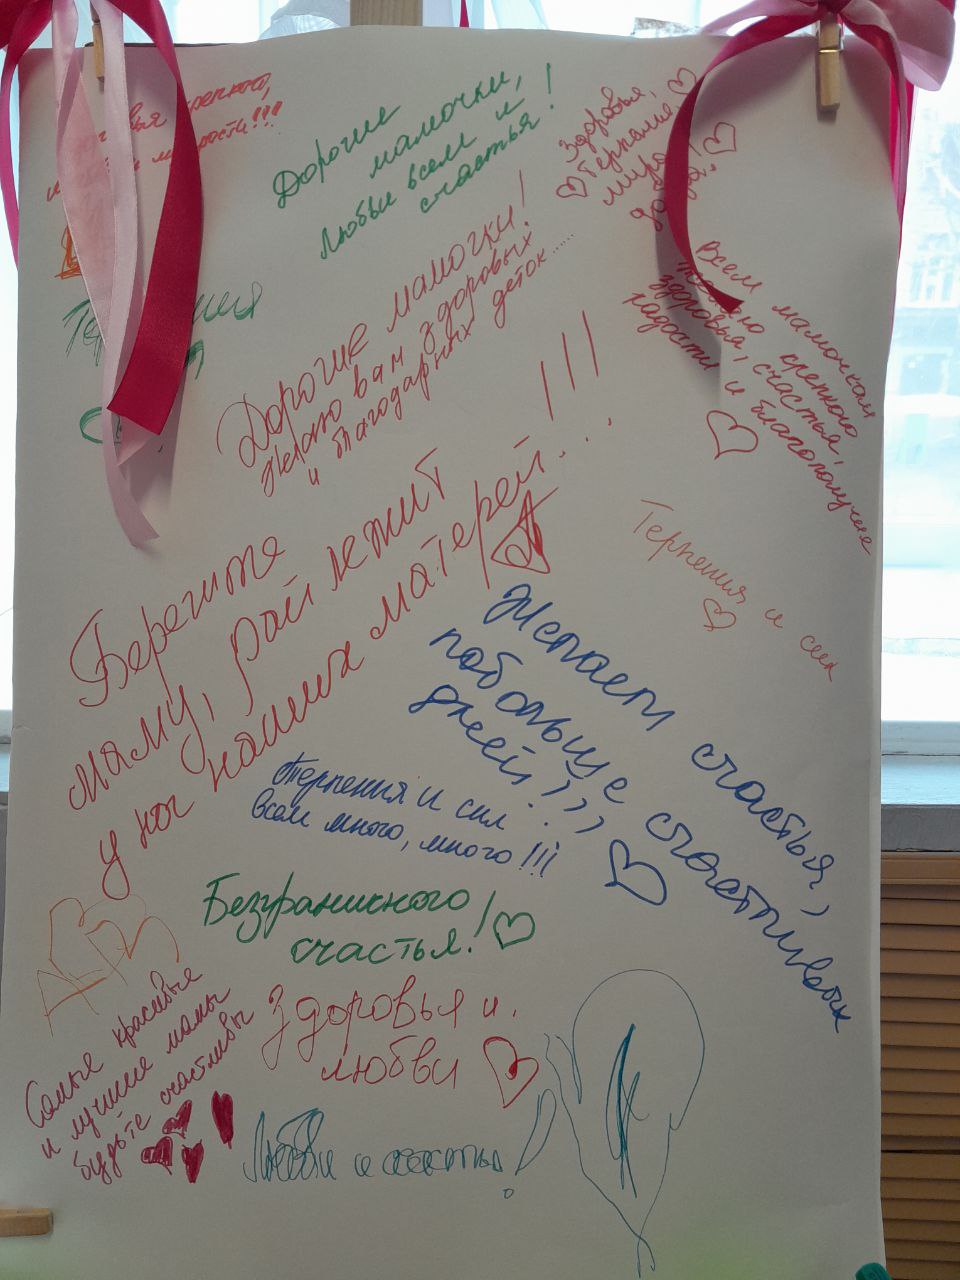 крепкого,
мудрости!!!
Дорогие
мамочки,
Любви всем и
счастья!
Здоровья,
терпения,
мира,
добра!
Всем мамочкам
желаю крепкого
здоровья, счастья,
радости и благополучия
Дорогие мамочки!
Желаю вам здоровых
и благодарных деток.....
Берегите
маму, рай лежит
у ног наших матерей...!!!
Терпения и сил
Желаем счастья,
побольше счастливых
дней!!!
Терпения и сил
всем много, много!!!
Безграничного
счастья!
Самые красивые
и лучшие мамы
будьте счастливы
Здоровья и
любви
Любви и счастья!